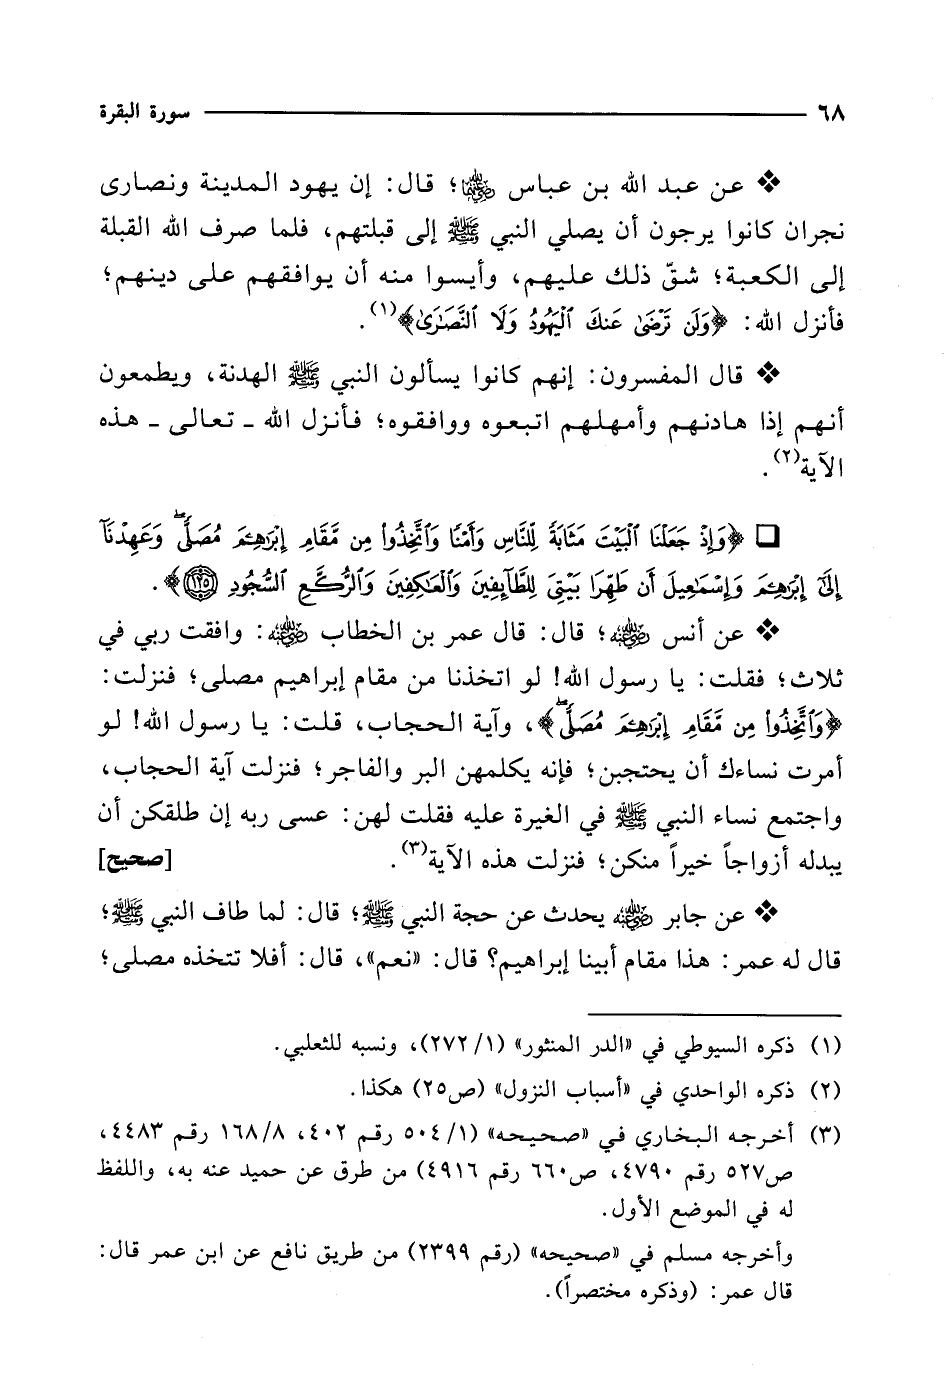 ٦٨ سورة البقرة
❖ عن عبد الله بن عباس رضي الله عنهما؛ قال: إن يهود المدينة ونصارى
نجران كانوا يرجون أن يصلي النبي ﷺ إلى قبلتهم، فلما صرف الله القبلة
إلى الكعبة؛ شقّ ذلك عليهم، وأيسوا منه أن يوافقهم على دينهم؛
فأنزل الله: ﴿وَلَن تَرْضَىٰ عَنكَ ٱلْيَهُودُ وَلَا ٱلنَّصَـٰرَىٰ﴾(١).
❖ قال المفسرون: إنهم كانوا يسألون النبي ﷺ الهدنة، ويطمعون
أنهم إذا هادنهم وأمهلهم اتبعوه ووافقوه؛ فأنزل الله ـ تعالى ـ هذه
الآية(٢).
❑ ﴿وَإِذْ جَعَلْنَا ٱلْبَيْتَ مَثَابَةً لِّلنَّاسِ وَأَمْنًا وَٱتَّخِذُوا۟ مِن مَّقَامِ إِبْرَٰهِـۧمَ مُصَلًّى ۖ وَعَهِدْنَآ
إِلَىٰٓ إِبْرَٰهِـۧمَ وَإِسْمَـٰعِيلَ أَن طَهِّرَا بَيْتِىَ لِلطَّآئِفِينَ وَٱلْعَـٰكِفِينَ وَٱلرُّكَّعِ ٱلسُّجُودِ ١٢٥﴾.
❖ عن أنس رضي الله عنه؛ قال: قال عمر بن الخطاب رضي الله عنه: وافقت ربي في
ثلاث؛ فقلت: يا رسول الله! لو اتخذنا من مقام إبراهيم مصلى؛ فنزلت:
﴿وَٱتَّخِذُوا۟ مِن مَّقَامِ إِبْرَٰهِـۧمَ مُصَلًّى ۖ﴾، وآية الحجاب، قلت: يا رسول الله! لو
أمرت نساءك أن يحتجبن؛ فإنه يكلمهن البر والفاجر؛ فنزلت آية الحجاب،
واجتمع نساء النبي ﷺ في الغيرة عليه فقلت لهن: عسى ربه إن طلقكن أن
يبدله أزواجاً خيراً منكن؛ فنزلت هذه الآية(٣). [صحيح]
❖ عن جابر رضي الله عنه يحدث عن حجة النبي ﷺ؛ قال: لما طاف النبي ﷺ؛
قال له عمر: هذا مقام أبينا إبراهيم؟ قال: «نعم»، قال: أفلا تتخذه مصلى؛
(١) ذكره السيوطي في «الدر المنثور» (١/ ٢٧٢)، ونسبه للثعلبي.
(٢) ذكره الواحدي في «أسباب النزول» (ص٢٥) هكذا.
(٣) أخرجه البخاري في «صحيحه» (١/ ٥٠٤ رقم ٤٠٢، ٨/ ١٦٨ رقم ٤٤٨٣،
ص٥٢٧ رقم ٤٧٩٠، ص٦٦٠ رقم ٤٩١٦) من طرق عن حميد عنه به، واللفظ
له في الموضع الأول.
وأخرجه مسلم في «صحيحه» (رقم ٢٣٩٩) من طريق نافع عن ابن عمر قال:
قال عمر: (وذكره مختصراً).